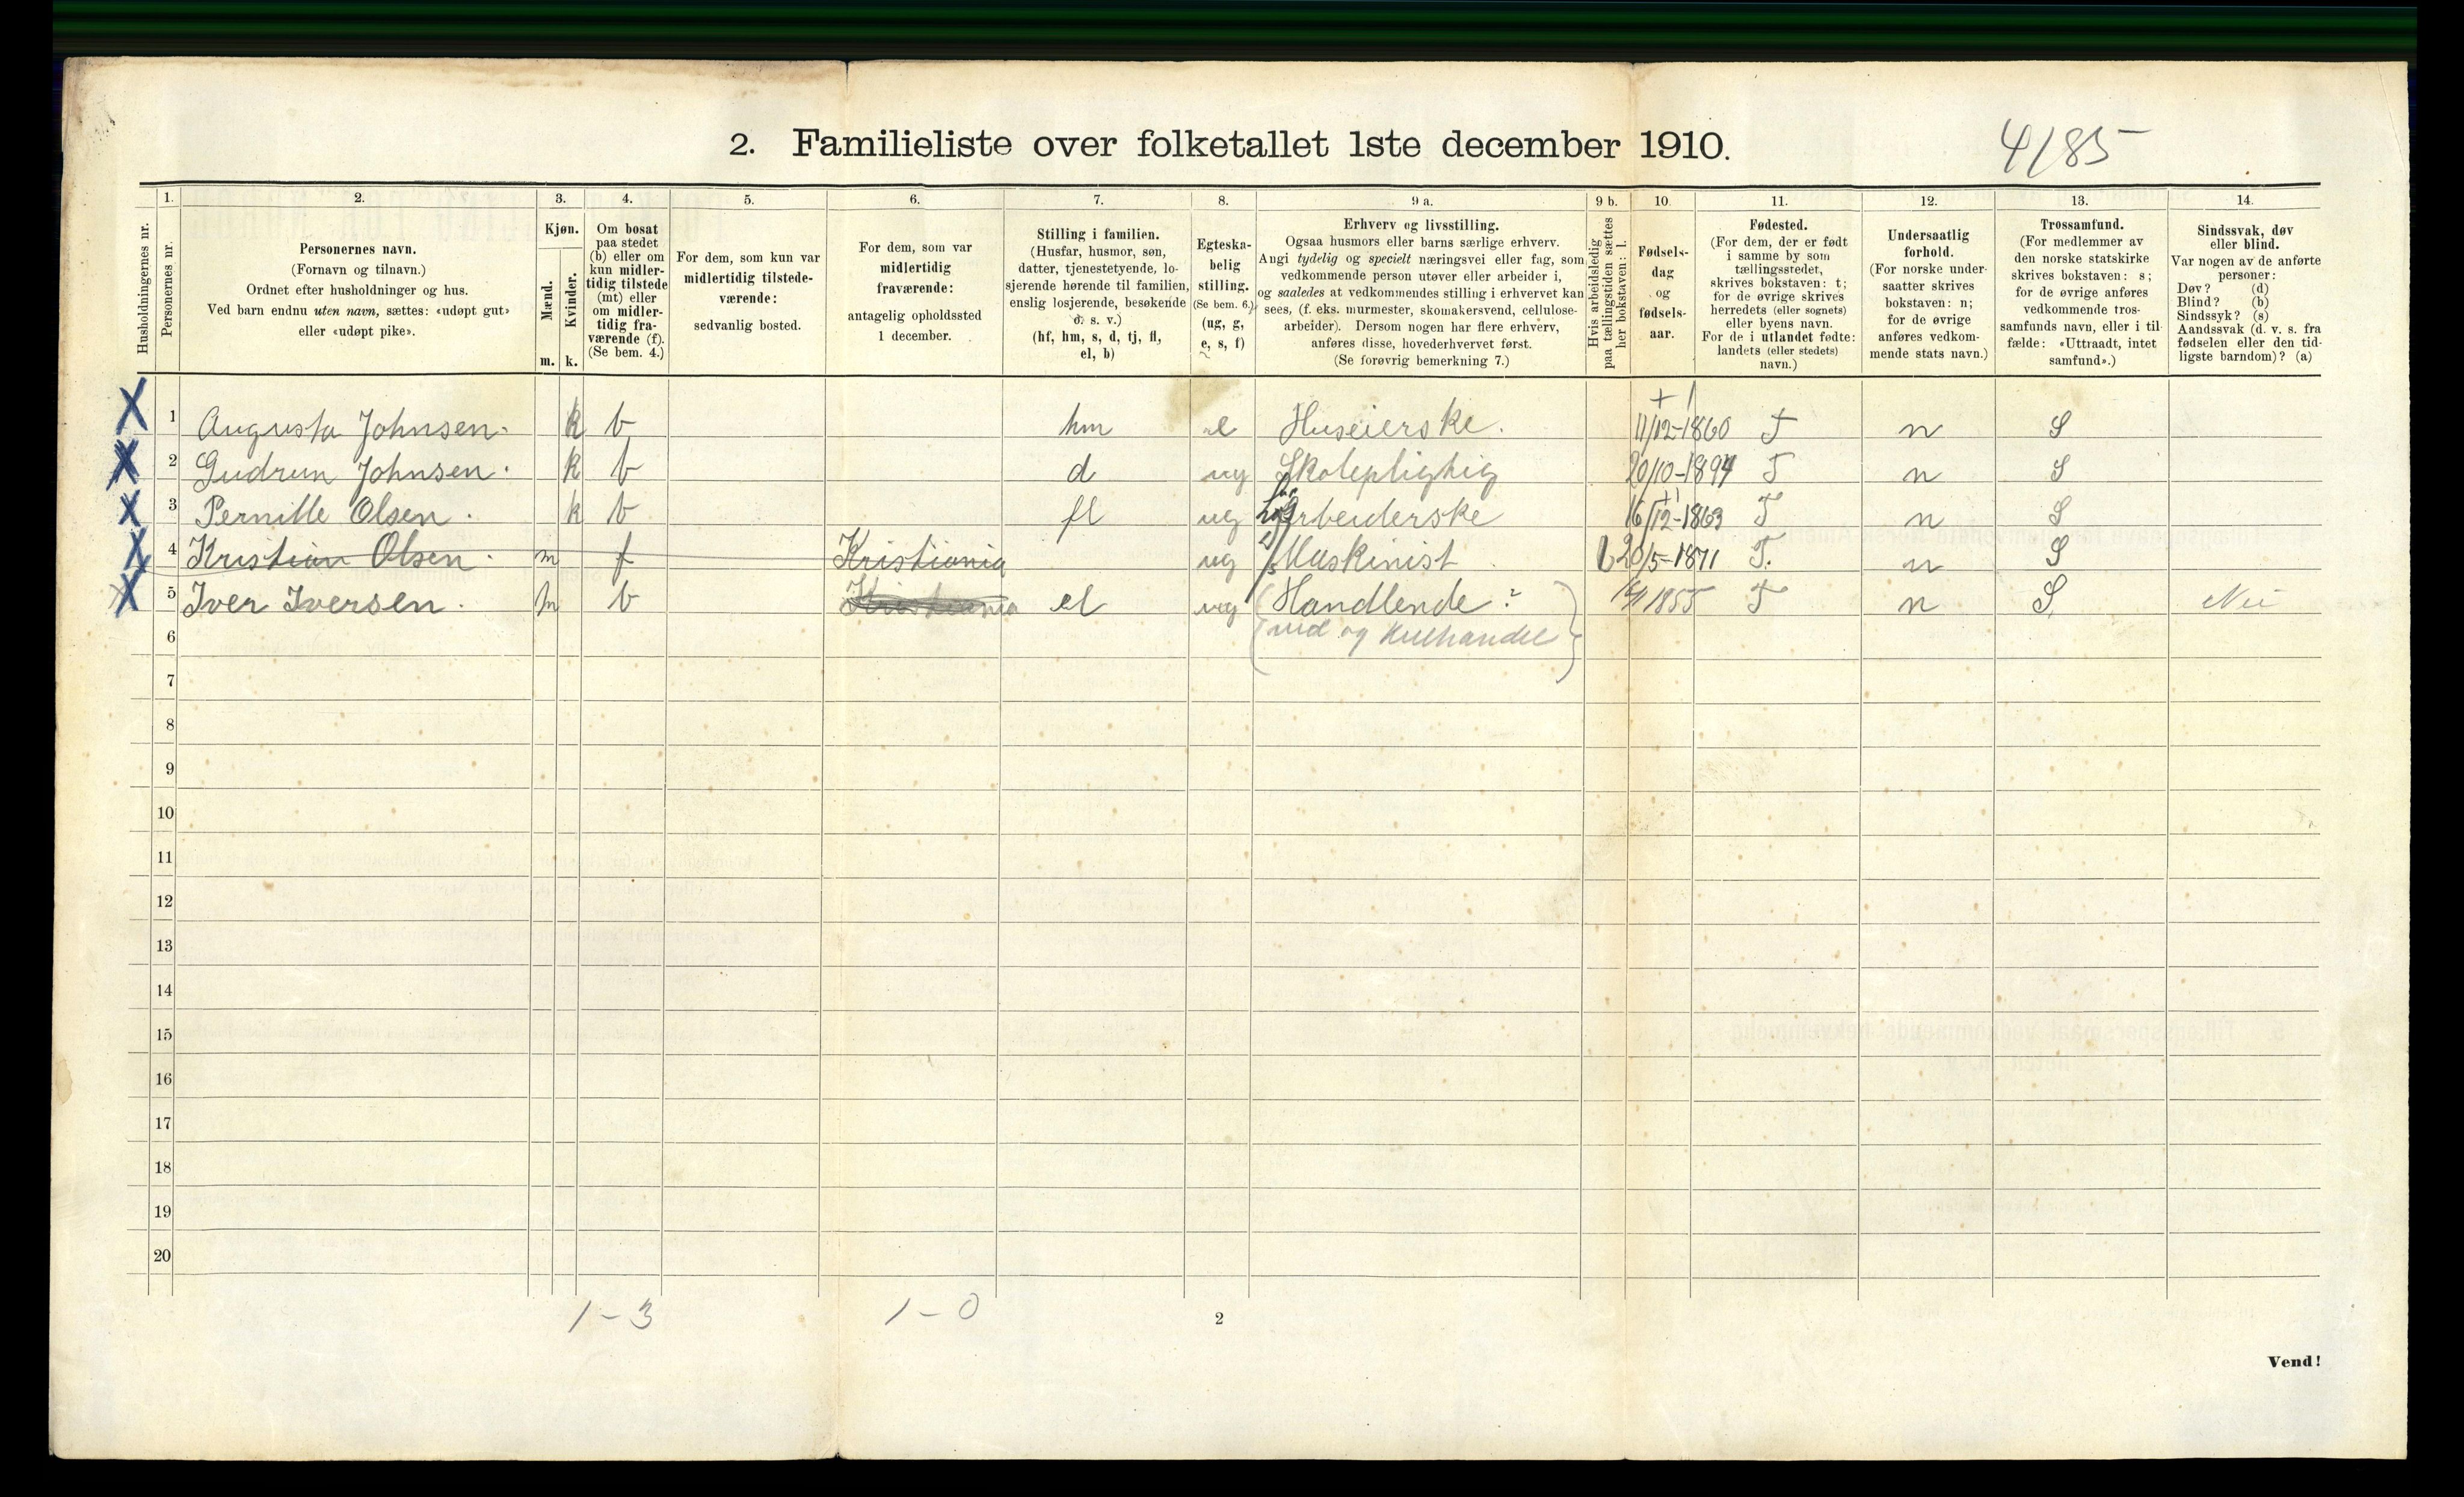 2. Familieliste over folketallet 1ste december 1910.
4/85
Husholdningernes nr.
1.
Personernes nr.
2.
Personernes navn.
(Fornavn og tilnavn.)
Ordnet efter husholdninger og hus.
Ved barn endnu uten navn, sættes: «udøpt gut»
eller «udøpt pike».
3.
Kjøn.
Mænd.
m.
Kvinder.
k.
4.
Om bosat
paa stedet
(b) eller om
kun midler-
tidig tilstede
(mt) eller
om midler-
tidig fra-
værende (f).
(Se bem. 4.)
5.
For dem, som kun var
midlertidig tilstede-
værende:
sedvanlig bosted.
6.
For dem, som var
midlertidig
fraværende:
antagelig opholdssted
1 december.
7.
Stilling i familien.
(Husfar, husmor, søn,
datter, tjenestetyende, lo-
sjerende hørende til familien,
enslig losjerende, besøkende
o. s. v.)
(hf, hm, s, d, tj, fl,
el, b)
8.
Egteska-
belig
stilling.
(Se bem. 6.)
(ug, g,
e, s, f)
9 a.
Erhverv og livsstilling.
Ogsaa husmors eller barns særlige erhverv.
Angi tydelig og specielt næringsvei eller fag, som
vedkommende person utøver eller arbeider i,
og saaledes at vedkommendes stilling i erhvervet kan
sees, (f. eks. murmester, skomakersvend, cellulose-
arbeider). Dersom nogen har flere erhverv,
anføres disse, hovederhvervet først.
(Se forøvrig bemerkning 7.)
9 b.
Hvis arbeidsledig
paa tællingstiden sættes
her bokstaven: l.
10.
Fødsels-
dag
og
fødsels-
aar.
11.
Fødested.
(For dem, der er født
i samme by som
tællingsstedet,
skrives bokstaven: t;
for de øvrige skrives
herredets (eller sognets)
eller byens navn.
For de i utlandet fødte:
landets (eller stedets)
navn.)
12.
Undersaatlig
forhold.
(For norske under-
saatter skrives
bokstaven: n;
for de øvrige
anføres vedkom-
mende stats navn.)
13.
Trossamfund.
(For medlemmer av
den norske statskirke
skrives bokstaven: s;
for de øvrige anføres
vedkommende tros-
samfunds navn, eller i til-
fælde: «Uttraadt, intet
samfund».)
14.
Sindssvak, døv
eller blind.
Var nogen av de anførte
personer:
Døv? (d)
Blind? (b)
Sindssyk? (s)
Aandssvak (d. v. s. fra
fødselen eller den tid-
ligste barndom)? (a)
X 1 Augusta Johnsen. k b hm e Huseierske. 11/12-1860 T n S
X 2 Gudrun Johnsen. k b d ug Skolepligtig 20/10-1894 T n S
X 3 Pernille Olsen. k b fl ug Arbeiderske 16/12-1863 T n S
X 4 Kristian Olsen. m f Kristiania ug Maskinist 20/5-1871 T. n S
X 5 Iver Iversen. m b Kristiania el ug Handlende? 1855 T n S. Nei
6 (ved og Kulhandel)
7
8
9
10
11
12
13
14
15
16
17
18
19
20
1-3
1-0
2
Vend!